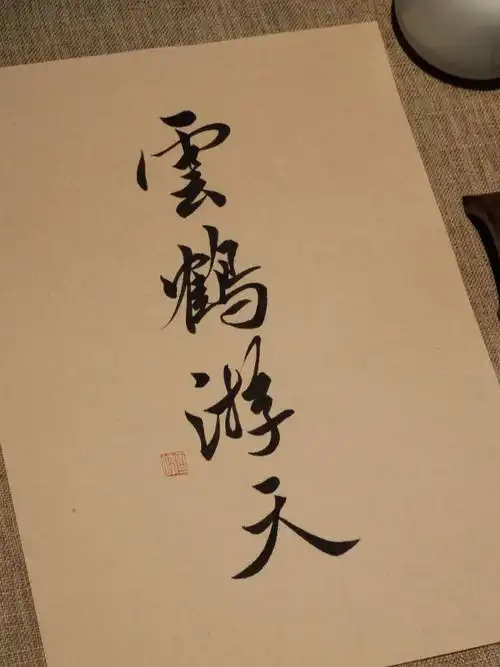 雲鶴游天